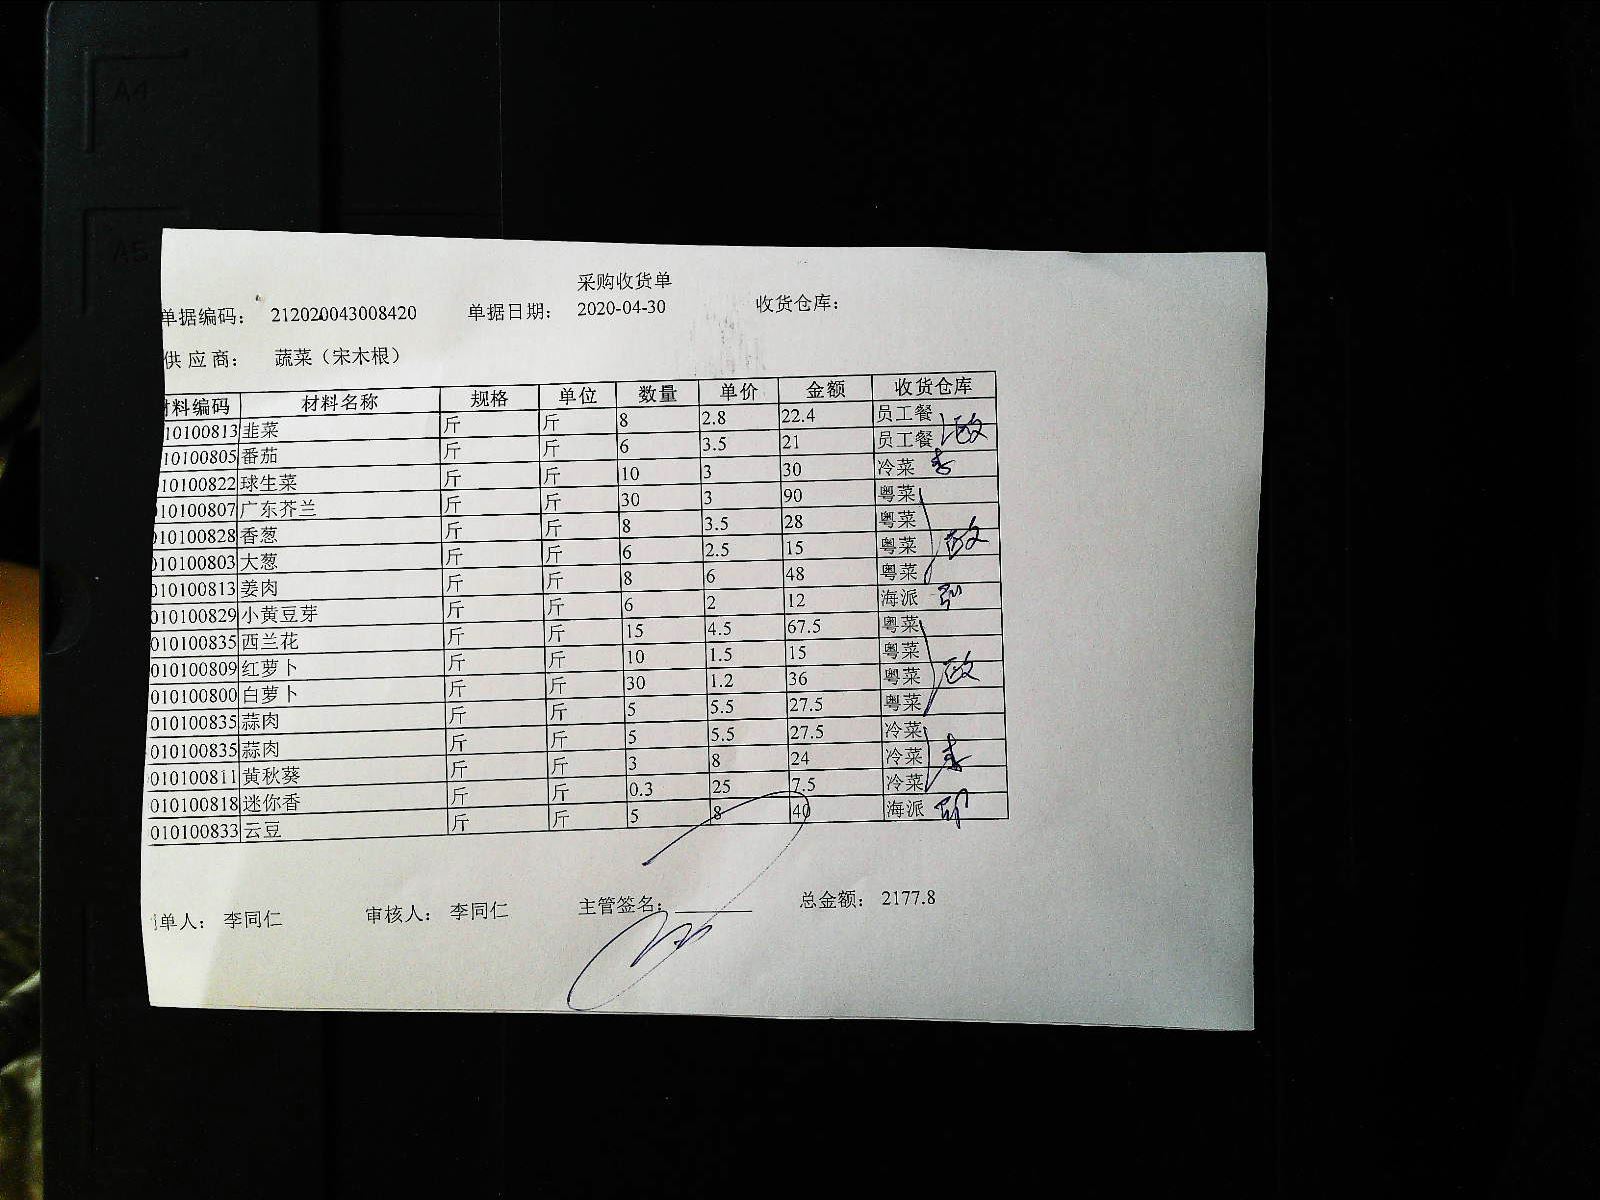 A4
A5
采购收货单
单据编码： 212020043008420 单据日期： 2020-04-30 收货仓库：
供 应 商： 蔬菜（宋木根）
材料编码 材料名称 规格 单位 数量 单价 金额 收货仓库
10100813 韭菜 斤 斤 8 2.8 22.4 员工餐
10100805 番茄 斤 斤 6 3.5 21 员工餐
10100822 球生菜 斤 斤 10 3 30 冷菜
10100807 广东芥兰 斤 斤 30 3 90 粤菜
010100828 香葱 斤 斤 8 3.5 28 粤菜
010100803 大葱 斤 斤 6 2.5 15 粤菜
010100813 姜肉 斤 斤 8 6 48 粤菜
010100829 小黄豆芽 斤 斤 6 2 12 海派
010100835 西兰花 斤 斤 15 4.5 67.5 粤菜
010100809 红萝卜 斤 斤 10 1.5 15 粤菜
010100800 白萝卜 斤 斤 30 1.2 36 粤菜
010100835 蒜肉 斤 斤 5 5.5 27.5 粤菜
010100835 蒜肉 斤 斤 5 5.5 27.5 冷菜
010100811 黄秋葵 斤 斤 3 8 24 冷菜
010100818 迷你香 斤 斤 0.3 25 7.5 冷菜
010100833 云豆 斤 斤 5 8 40 海派
单人： 李同仁 审核人： 李同仁 主管签名： 总金额： 2177.8